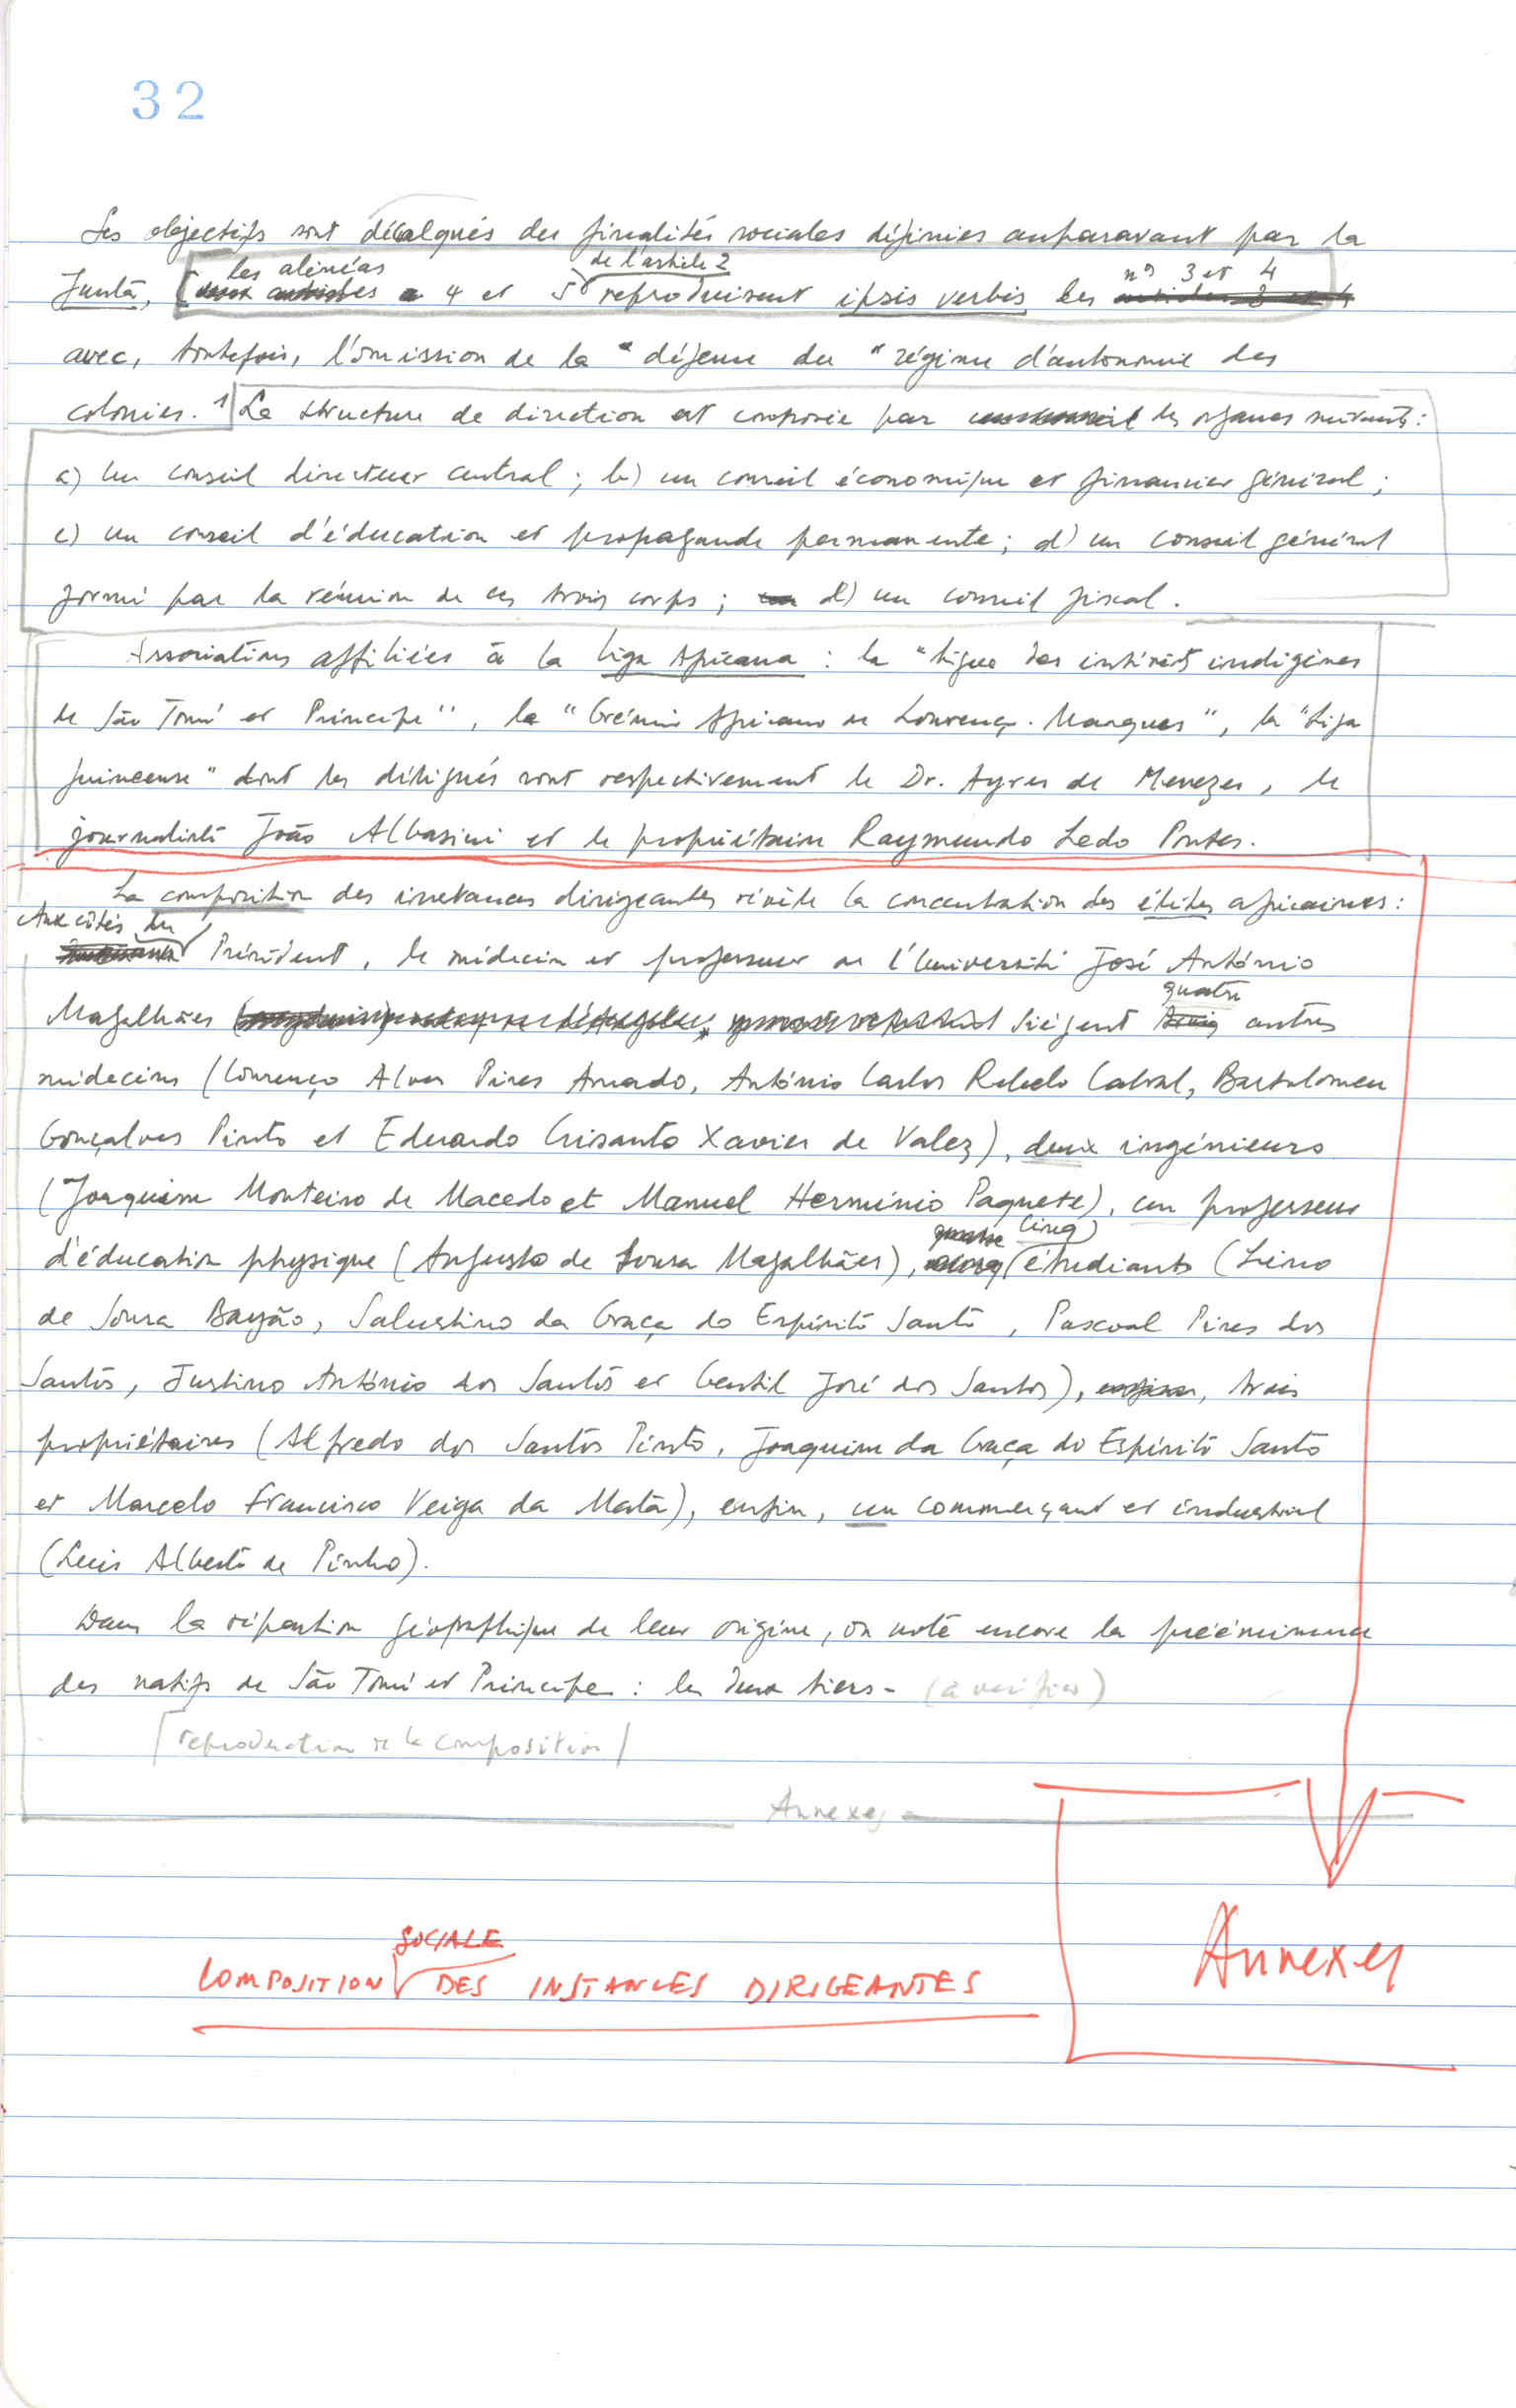 32
Les objectifs sont décalqués des finalités sociales définies auparavant par la
Junta, [les alinéas 4 et 5 de l'article 2 reproduisent ipsis verbis les nos 3 et 4
avec, toutefois, l'omission de la "défense du "régime d'autonomie des
colonies. 1 La structure de direction est composée par les organes suivants:
a) un conseil directeur central; b) un conseil économique et financier général;
c) un conseil d'éducation et propagande permanente; d) un conseil général
formé par la réunion de ces trois corps; d) un conseil fiscal.
Associations affiliées à la Liga Africana: la "Ligue des intérêts indigènes
de São Tomé et Príncipe", la "Grémio Africano de Lourenço-Marques", la "Liga
guineense" dont les délégués sont respectivement le Dr. Ayres de Menezes, le
journaliste João Albasini et le propriétaire Raymundo Ledo Pontes.
La composition des instances dirigeantes révèle la concentration des élites africaines:
Aux côtés du Président, le médecin et professeur de l'Université José António
Magalhães siègent quatre autres
médecins (Lourenço Alves Pires Amado, António Carlos Rebelo Cabral, Bartolomeu
Gonçalves Pinto et Eduardo Crisanto Xavier de Valez), deux ingénieurs
(Joaquim Monteiro de Macedo et Manuel Hermínio Paquete), un professeur
d'éducation physique (Augusto de Sousa Magalhães), cinq étudiants (Lino
de Sousa Bayão, Salustino da Graça do Espírito Santo, Pascoal Pires dos
Santos, Justino António dos Santos et Gentil José dos Santos), trois
propriétaires (Alfredo dos Santos Pinto, Joaquim da Graça do Espírito Santo
et Marcelo Francisco Veiga da Mata), enfin, un commerçant et industriel
(Luis Alberto de Pinho).
Dans la répartion géographique de leur origine, on note encore la prééminence
des natifs de São Tomé et Príncipe: les deux tiers- (à vérifier)
[reproduction de la composition]
Annexes
Annexes
COMPOSITION SOCIALE DES INSTANCES DIRIGEANTES